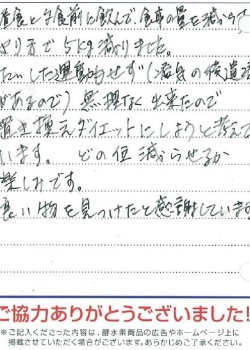 昼食と夕食前に飲んで、食事の量を減らす
やり方で5kg減りました。
たいした運動もせず(
があるので)無理なく出来たので
置き換えダイエットにしようと考えて
います。 どの位減らせるか
楽しみです。
良い物を見つけたと感謝しています
ご協力ありがとうございました!
※ご記入くださった内容は、酵水素商品の広告やホームページ上に
掲載させていただく場合がございます。あらかじめご了承ください。